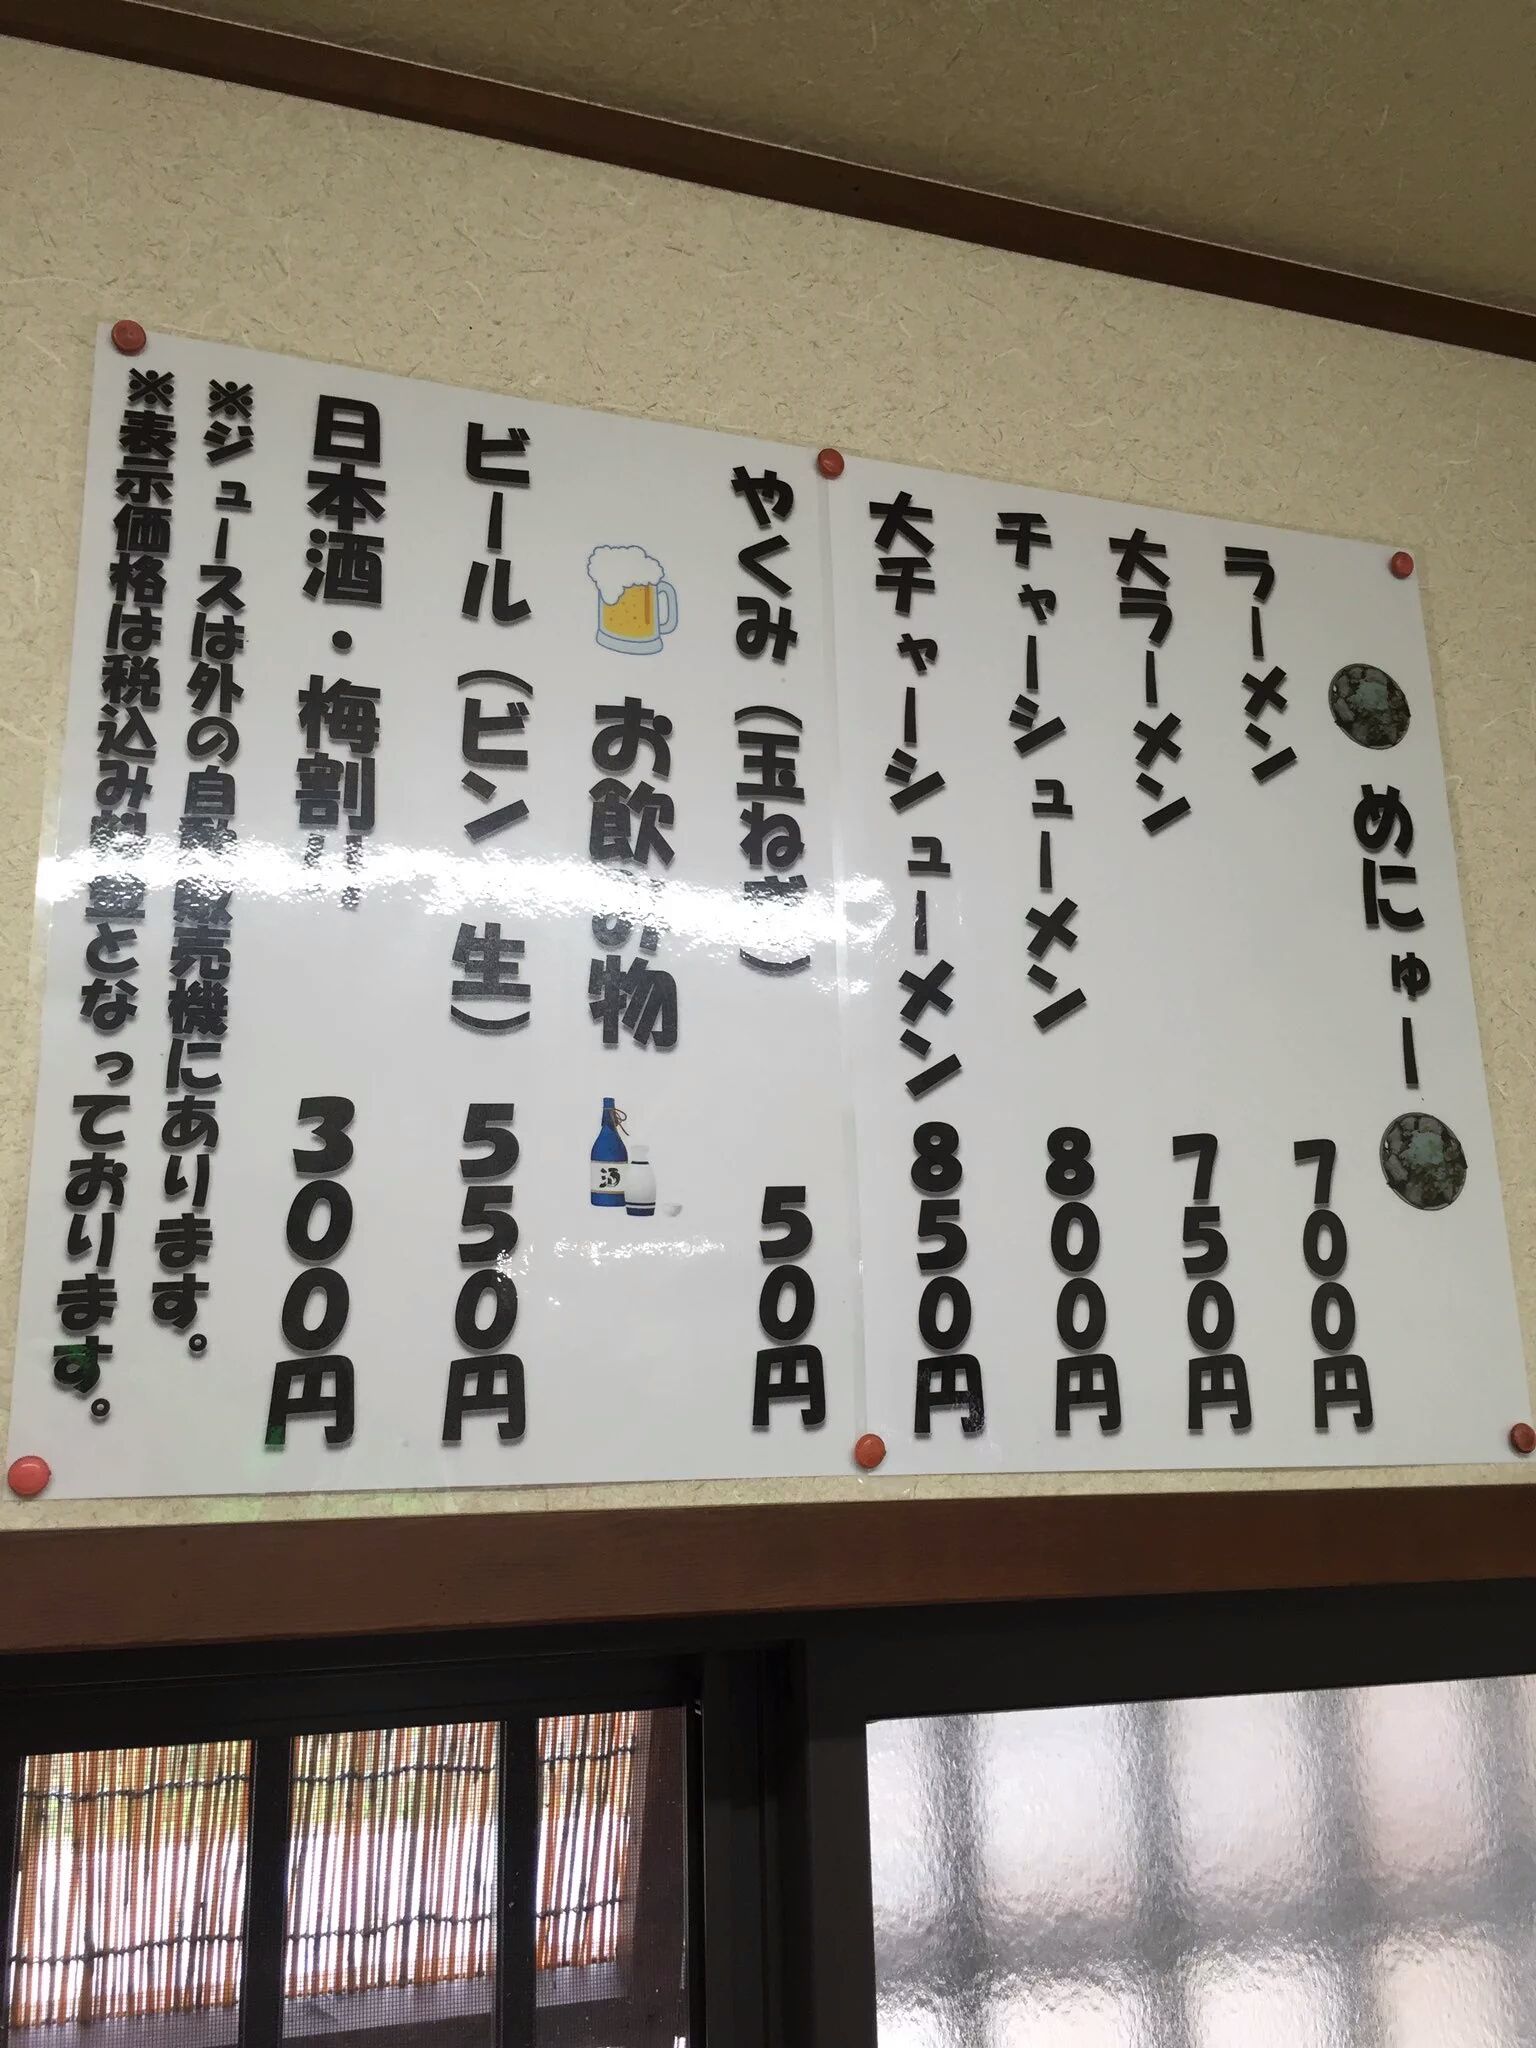 めにゅー
ラーメン 700円
大ラーメン 750円
チャーシューメン 800円
大チャーシューメン 850円
やくみ（玉ねぎ） 50円
お飲み物
酒
ビール（ビン 生） 550円
日本酒・梅割り 300円
※ジュースは外の自動販売機にあります。
※表示価格は税込み料金となっております。